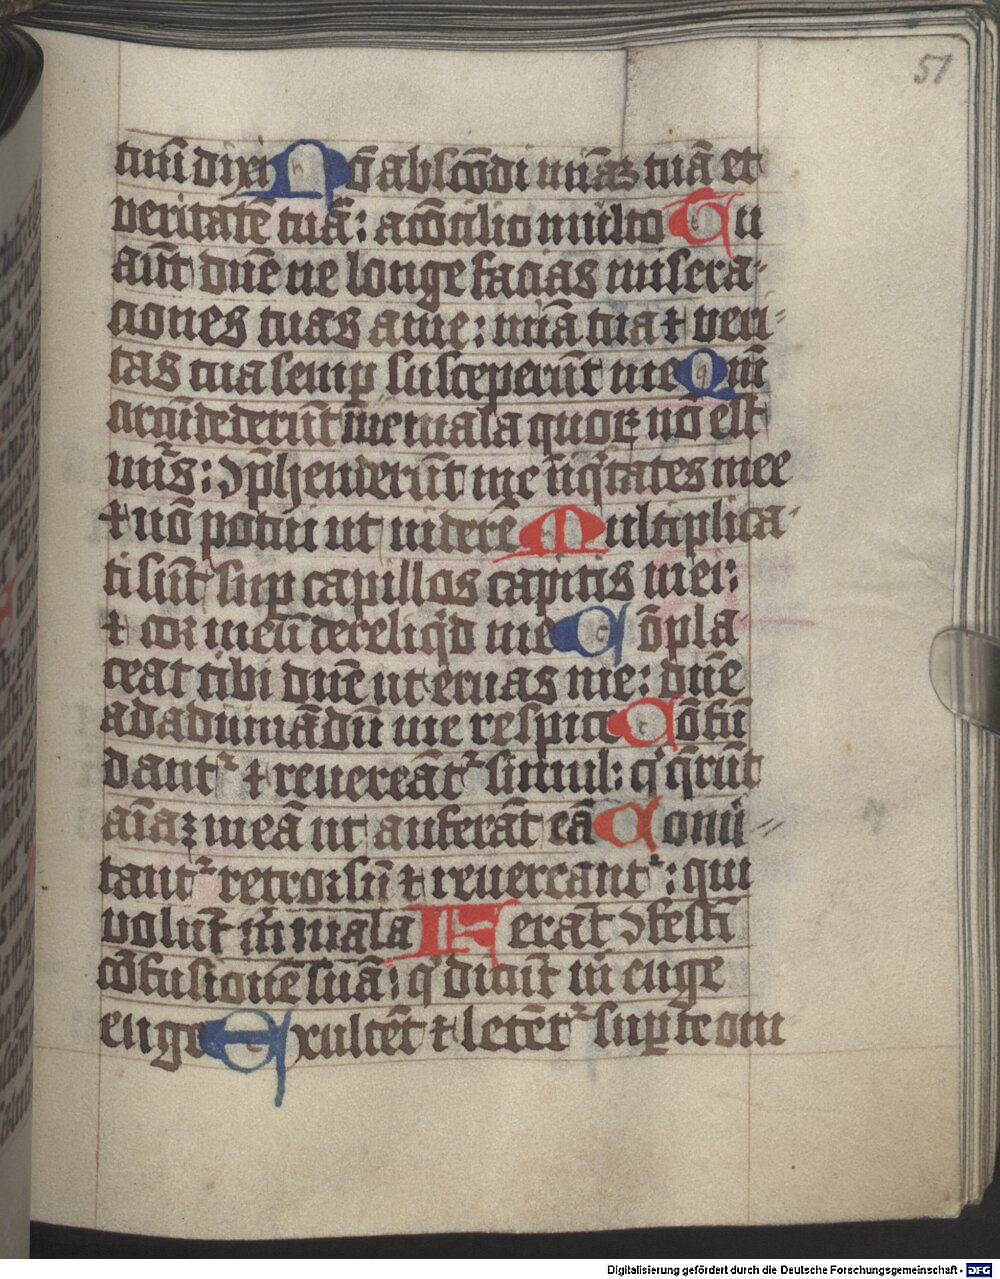 57
tuū dixi Nō abscōdi miā₃ tuā et
veritatē tuā: a cōcilio multo Tu
aūt dūe ne longe facias misera-
ciones tuas a me: miā tua ⁊ veri-
tas tua semꝑ susceperūt me Qm̄
circūdederūt me mala quoꝝ nō est
nūs: ꝯp̄henderūt me īiq̄tates mee
⁊ nō potui ut viderē Multiplica-
ti sūt suꝑ capillos capitis mei:
⁊ cor meū dereliq̄d me Cōpla-
ceat tibi dūe ut eruas me: dūe
ad adiuuādū me respice Cōfū
dantᷣ ⁊ revereātᷣ simul: q̄ q̄rūt
aīa₃ meā ut auferāt eā Conu̇
tantᷣ retrorsū ⁊ revereantᷣ: qui
volūt m̄ mala Ferāt ꝯfestī
cōfusionē suā: q̄ dicūt m̄ euge
euge Exultēt ⁊ letētᷣ suꝑ te om
Digitalisierung gefördert durch die Deutsche Forschungsgemeinschaft - DFG